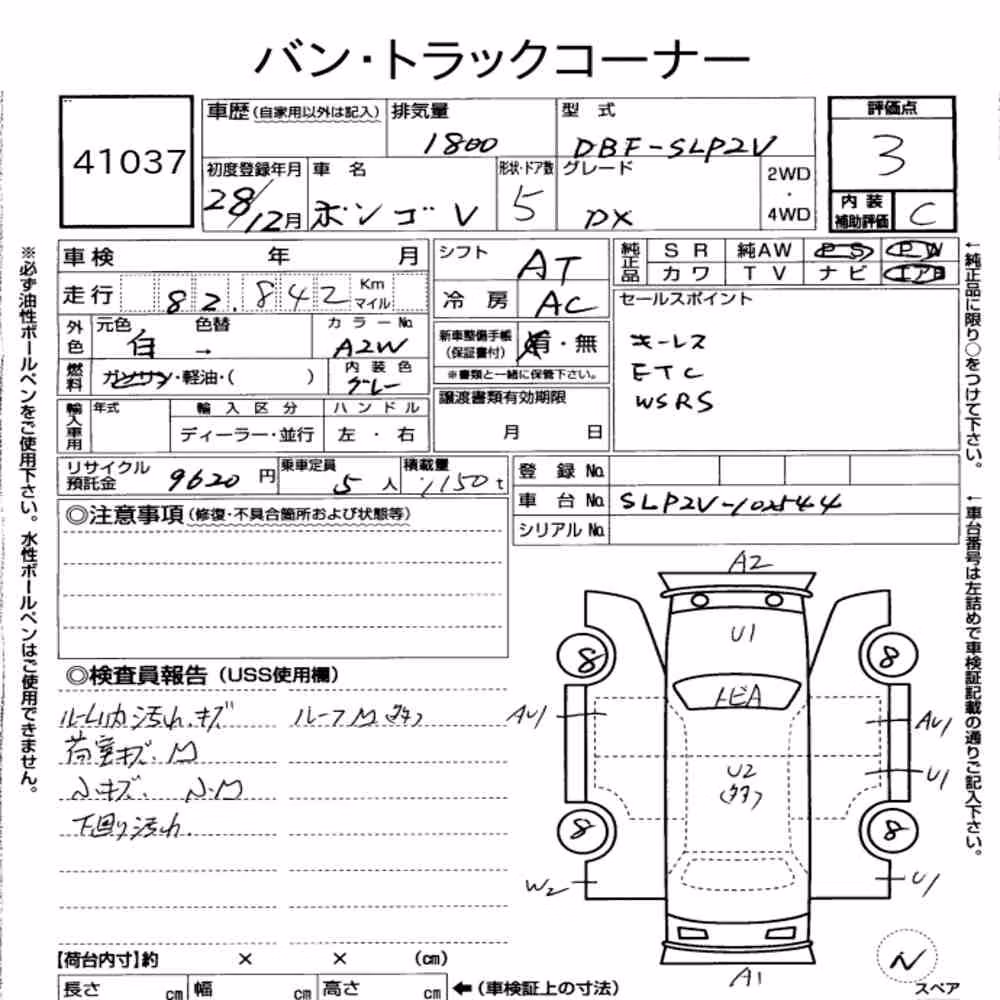 バン・トラックコーナー
41037
車歴(自家用以外は記入) 排気量 型 式 評価点
1800 DBF-SLP2V 3
初度登録年月 車 名 形状・ドア数 グレード 2WD・4WD
28/12月 ボンゴV 5 DX
内 装 補助評価 C
車検 年 月
シフト AT
純正品 SR 純AW PS PW
カワ TV ナビ エアB
走行 82.842 Km マイル
冷 房 AC
セールスポイント
キーレス
ETC
WSRS
外色 元色 白 色替 → カラーNo. A2W
新車整備手帳(保証書付) 有・無
※書類と一緒に保管下さい。
燃料 ガソリン・軽油・( ) 内装色 グレー
譲渡書類有効期限
月 日
輸入車用 年式 輸入区分 ハンドル
ディーラー・並行 左・右
リサイクル預託金 9620 円 乗車定員 5 人 積載量 1150 t
登 録 No.
車 台 No. SLP2V-102544
シリアル No.
◎注意事項(修復・不具合箇所および状態等)
◎検査員報告(USS使用欄)
ルーム内汚れ.キズ ルーフM
荷室キズ.M
小キズ. 小M
下回り汚れ.
A2
U1
8 8
トビA
AU1 AU1
U2 U1
8 8
W2 U1
A1
N
スペア
【荷台内寸】約 × × (cm)
長さ cm 幅 cm 高さ cm ←(車検証上の寸法)
※必ず油性ボールペンをご使用下さい。水性ボールペンはご使用できません。
←純正品に限り○をつけて下さい。
←車台番号は左詰めで車検証記載の通りご記入下さい。